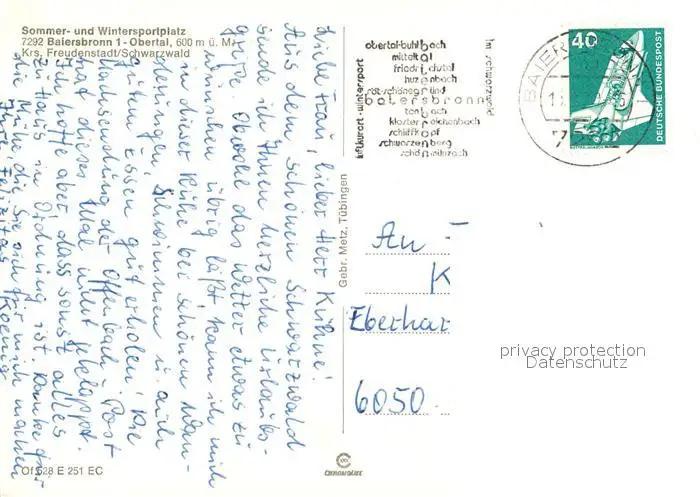 Sommer- und Wintersportplatz
7292 Baiersbronn 1 - Obertal, 600 m ü. M.
Krs. Freudenstadt/Schwarzwald
Liebe Frau, lieber Herr Kühne!
Aus dem schönen Schwarzwald
sende ich Ihnen herzliche Urlaubs-
grüße. Obwohl das Wetter etwas zu
wünschen übrig läßt, kann ich mich
in dieser Ruhe bei schönen Wan-
derungen, Schwimmen u. auch
gutem Essen gut erholen. Die
der Offenbach-Post
hat dieses Mal nicht geklappt.
Ich hoffe aber, dass sonst alles
zu Haus in Ordnung ist. Danke für
die Mühe, die Sie sich für mich machen
Koenig
Of 628 E 251 EC
Gebr. Metz, Tübingen
luftkurort - wintersport
obertal-buhlbach
mitteltal
friedrichstal
huzenbach
röt-schönegründ
baiersbronn
tonbach
klosterreichenbach
schliffkopf
schwarzenberg
schönmünzach
im schwarzwald
BAIER
7292
40
DEUTSCHE BUNDESPOST
An
K
Eberhar
6050
privacy protection
Datenschutz